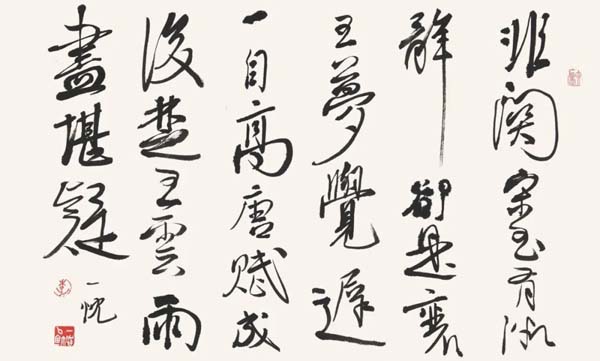 非關宋玉有微
辭卻是襄
王夢覺遲
一自高唐賦成
後楚王雲雨
盡堪疑